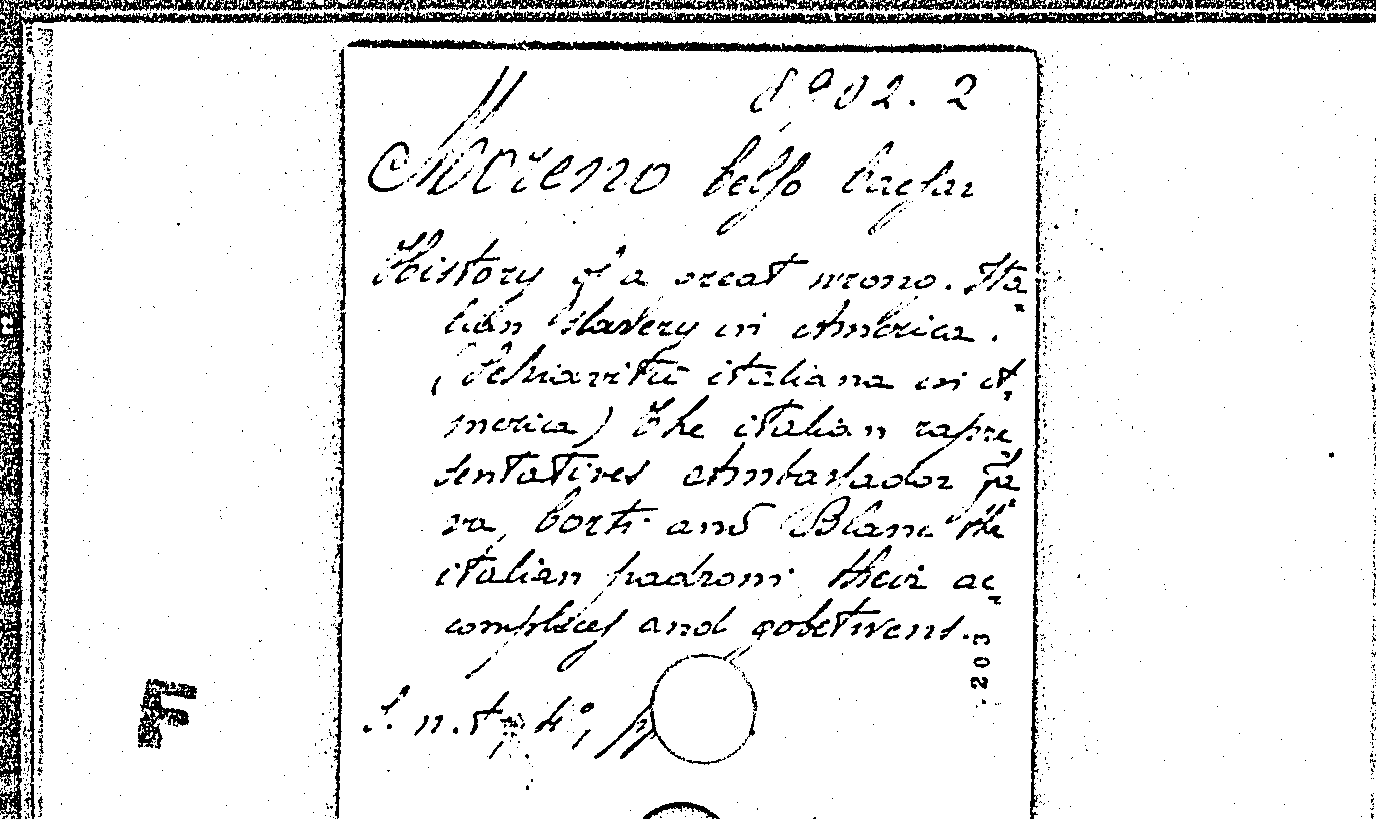 8902.2
Moreno Celso Caesar
History of a great wrong. Ita-
lian slavery in America.
(Schiavitù italiana in A-
merica) The italian rapre-
sentatives Ambassador Fa-
va, Corti and Blanc the
italian padroni their ac-
complices and gobetwens.
S. n. t., 4°, p
203
F